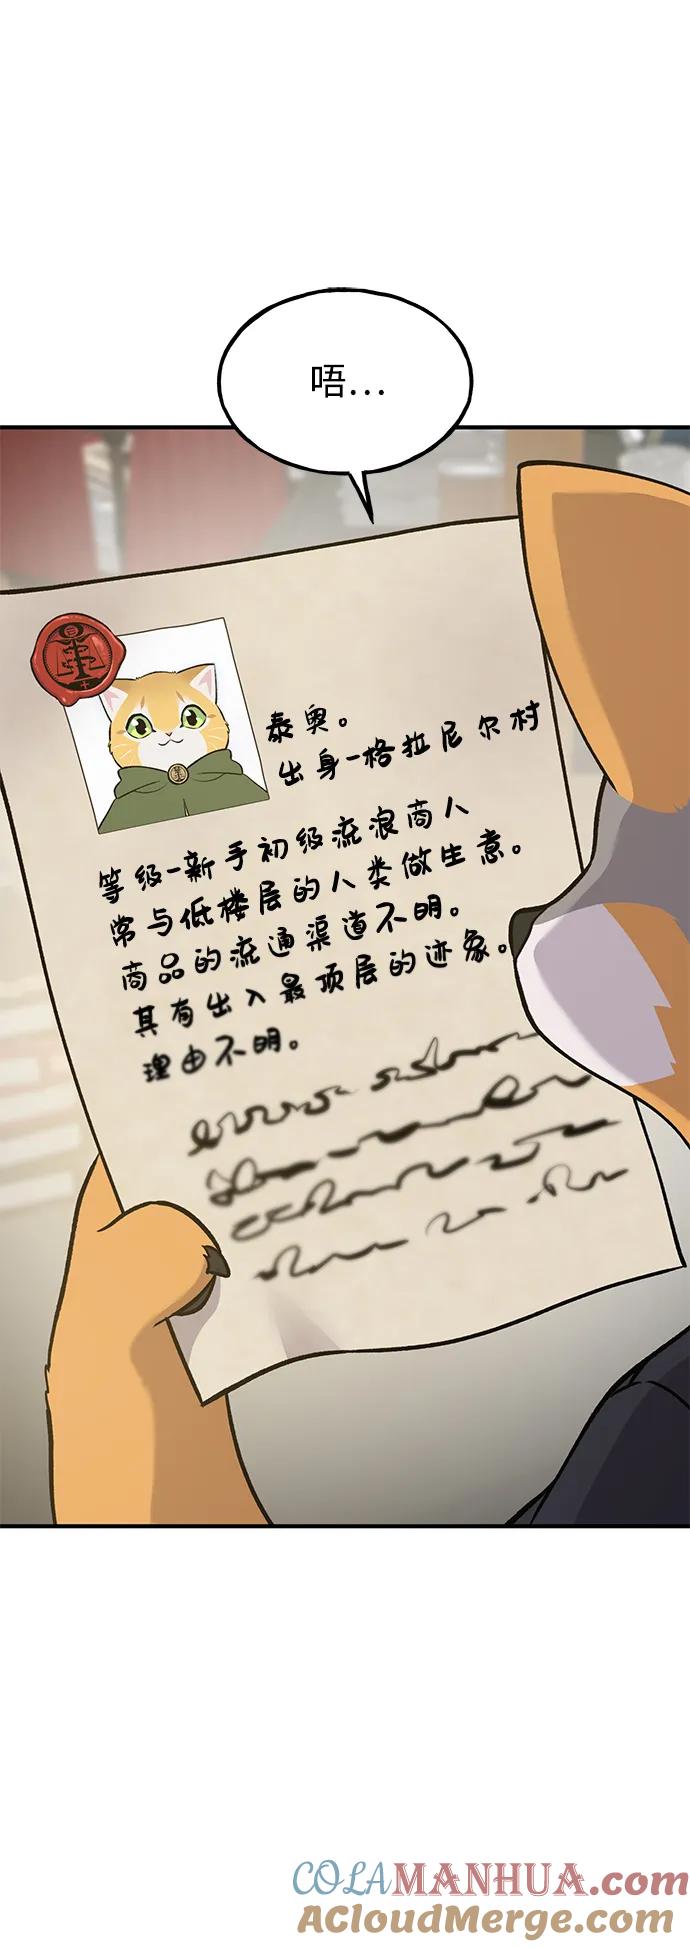 唔...
泰奥。
出身-格拉尼尔村
等级-新手初级流浪商人
常与低楼层的人类做生意。
商品的流通渠道不明。
其有出入最顶层的迹象。
理由不明。
COLAMANHUA.com
ACloudMerge.com